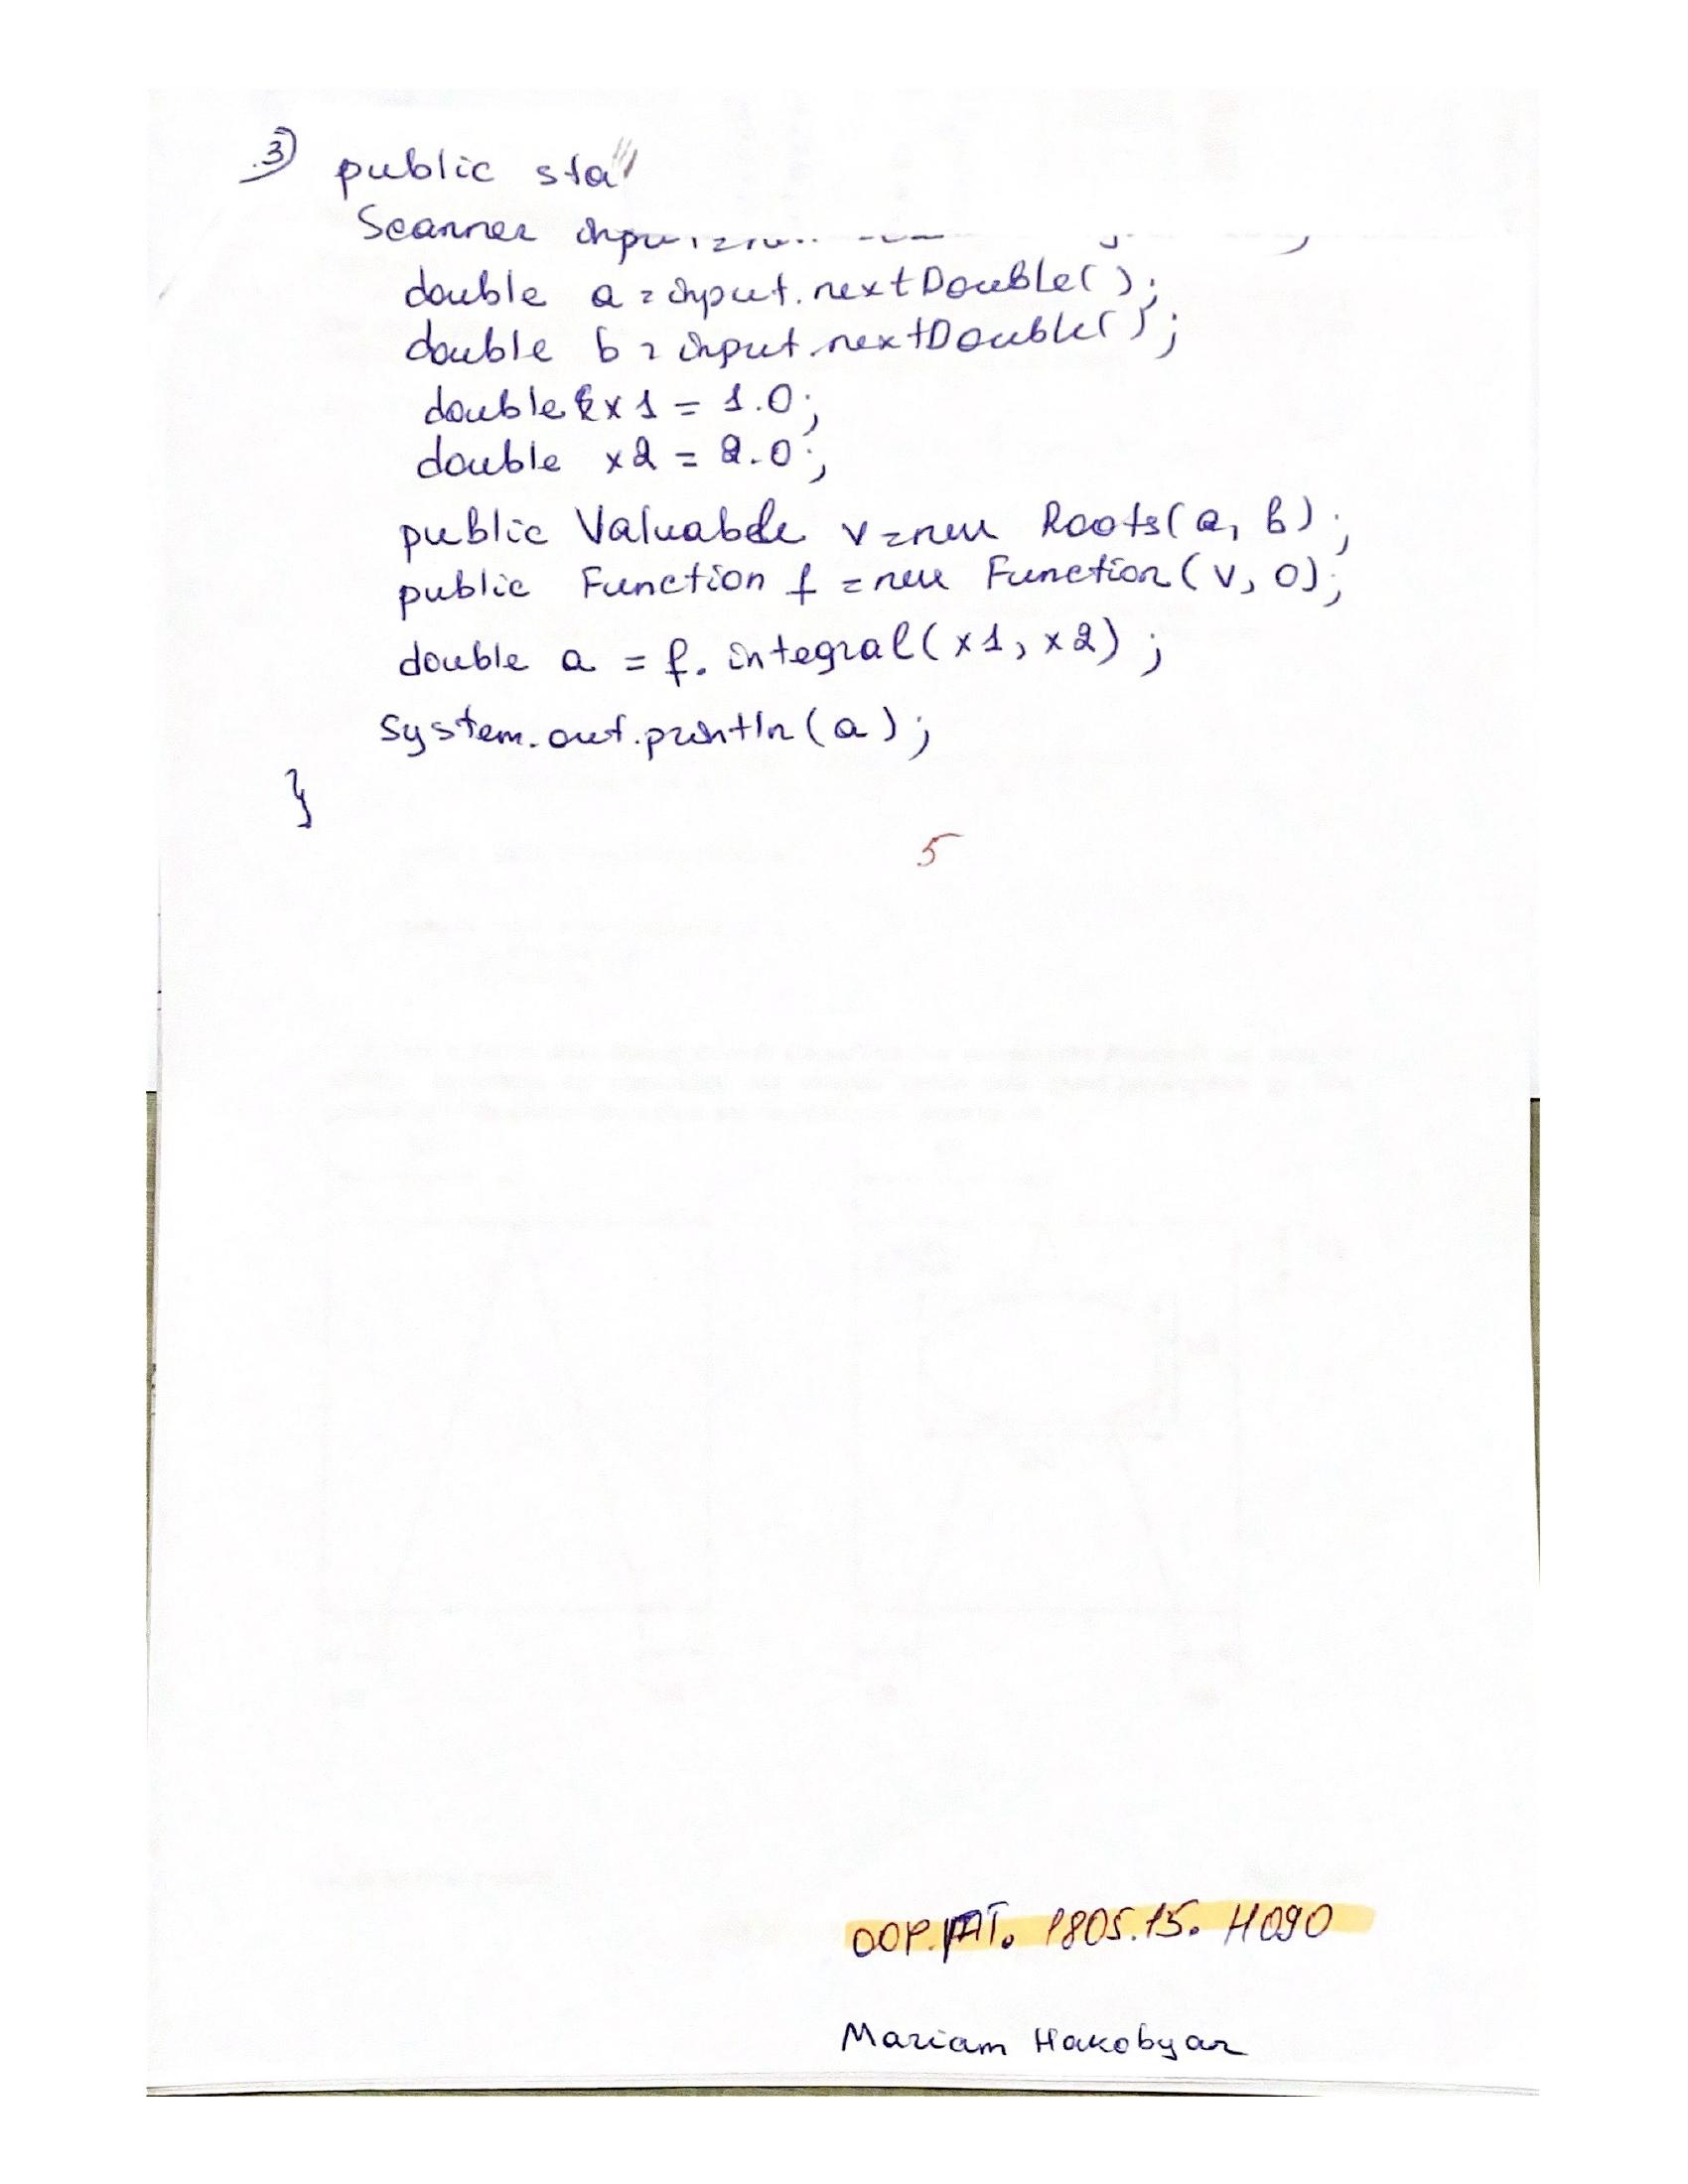 3) public sta
Scanner
double a = input.nextDouble();
double b = input.nextDouble();
double x1 = 1.0;
double x2 = 2.0;
public Valuable v = new Roots(a, b);
public Function f = new Function(v, 0);
double a = f. integral(x1, x2);
System.out.println(a);
}
5
1805.15. H090
Mariam Hakobyan